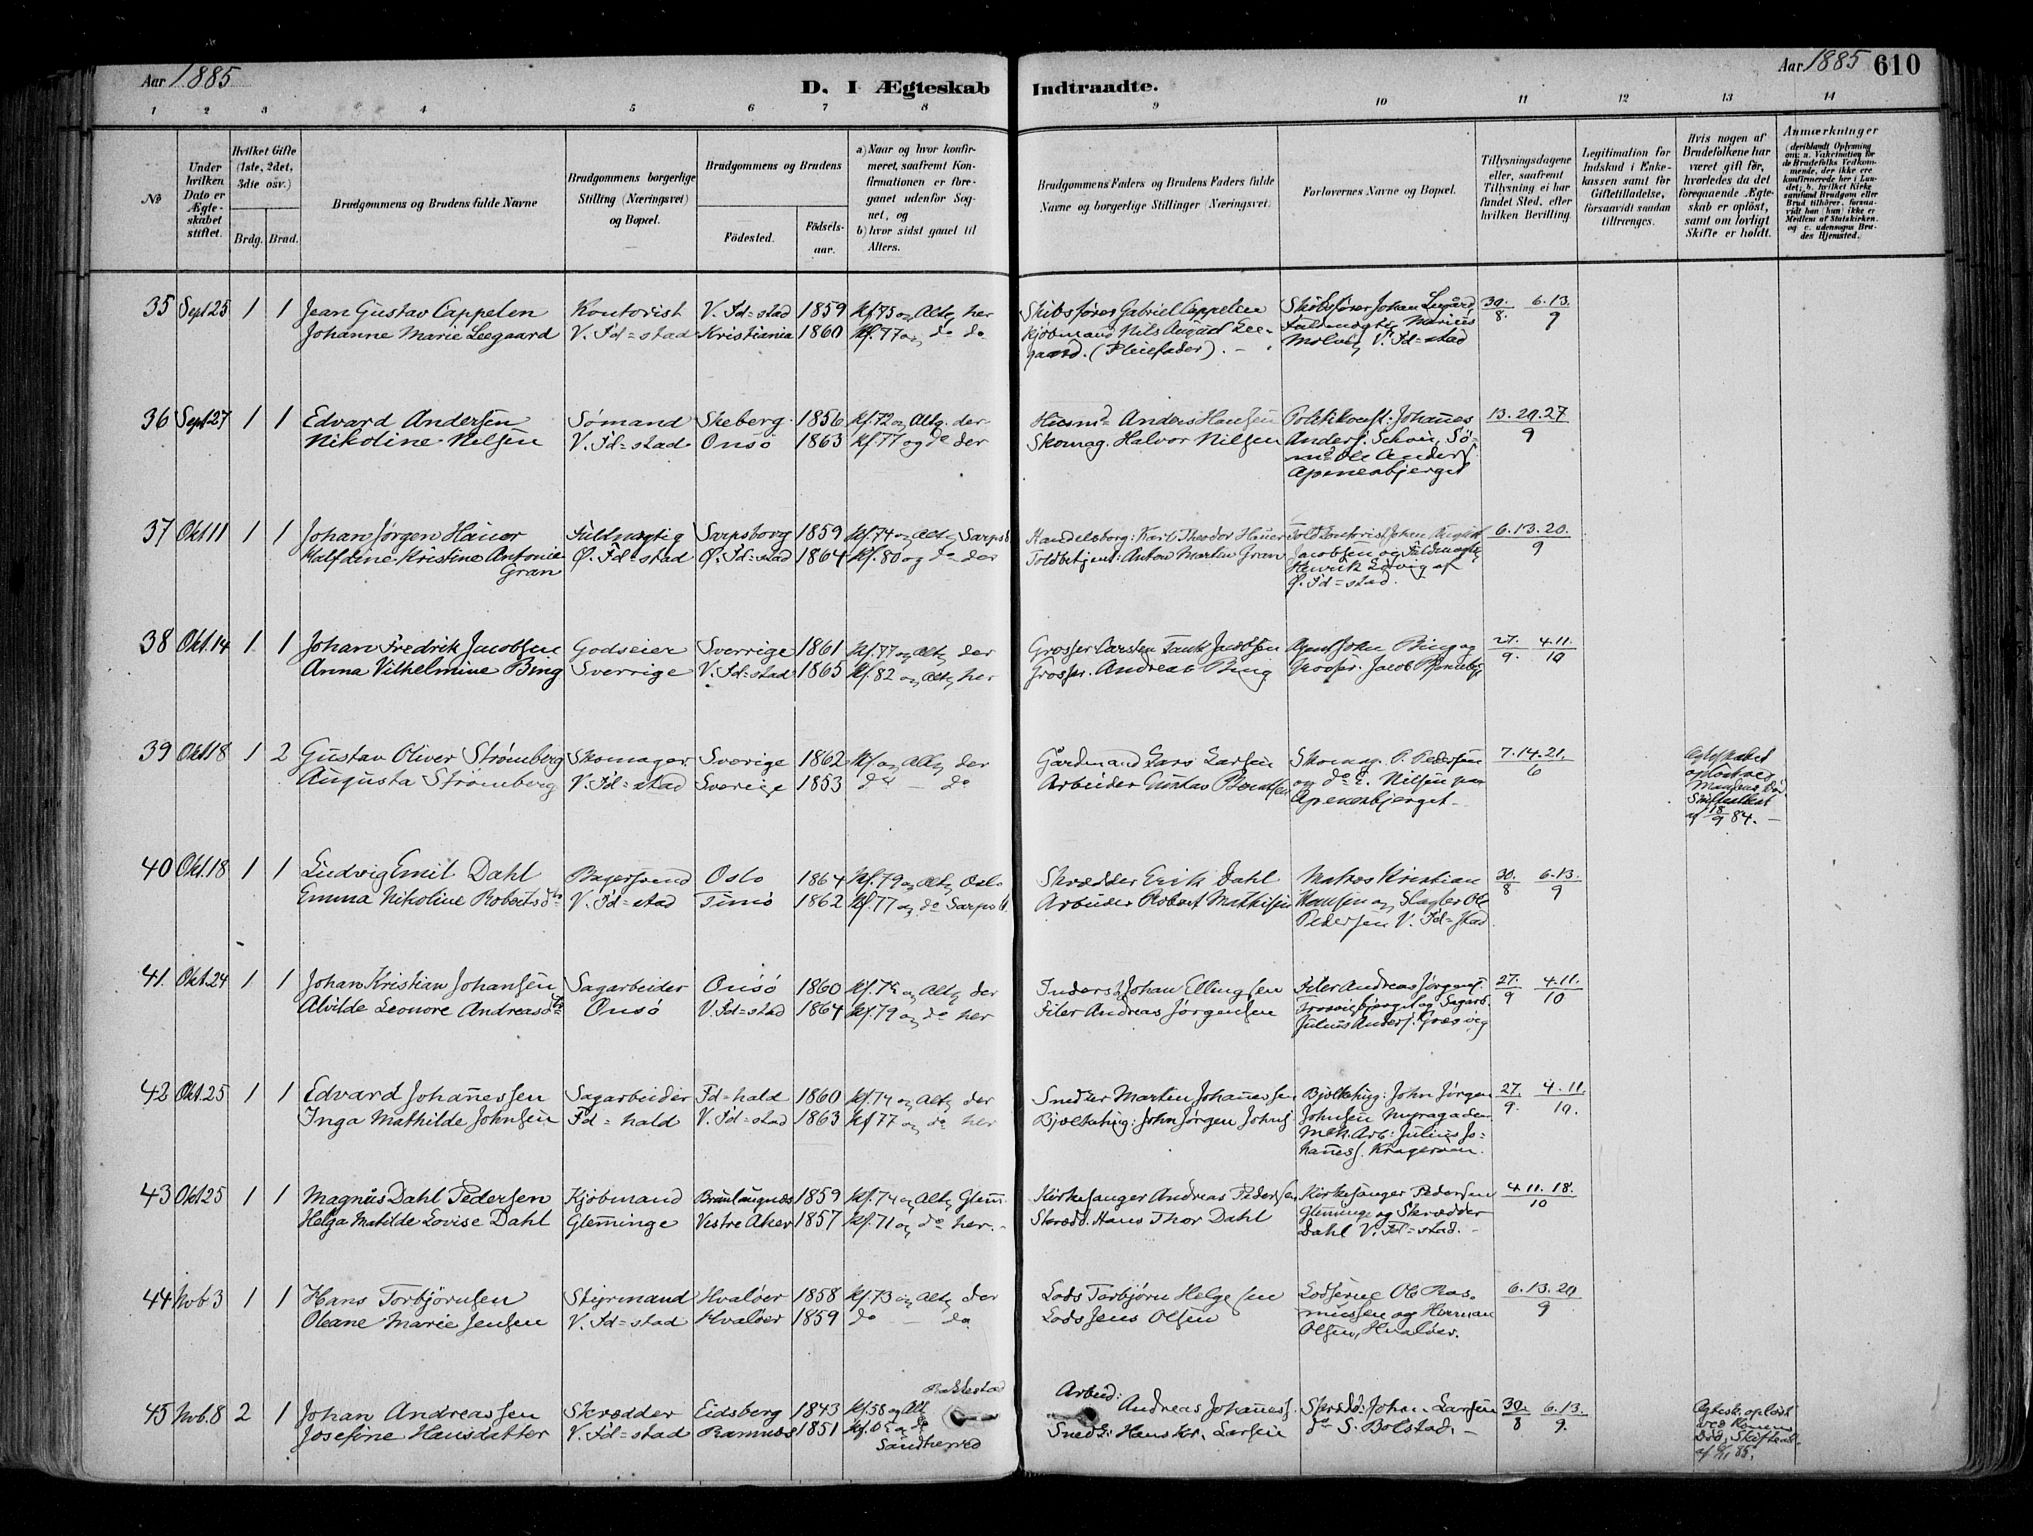 Aar 1885
D. I Ægteskab Indtraadte.
Aar 1885 610
1 2 3 4 5 6 7 8 9 10 11 12 13 14
No
Under hvilken Dato er Ægteskabet stiftet.
Hvilket Gifte (1ste, 2det, 3die osv.)
Brdg. Brud.
Brudgommens og Brudens fulde Navne
Brudgommens borgerlige Stilling (Næringsvei) og Bopæl.
Brudgommens og Brudens
Födested. Födselsaar.
a) Naar og hvor konfirmeret, saafremt Konfirmationen er foregaaet udenfor Sognet, og
b) hvor sidst gaaet til Alters.
Brudgommens Faders og Brudens Faders fulde Navne og borgerlige Stillinger (Næringsvei)
Forlovernes Navne og Bopæl.
Tillysningsdagene eller, saafremt Tillysning ei har fundet Sted, efter hvilken Bevilling.
Legitimation for Indskud i Enkekassen samt for Giftetilladelse, forsaavidt saadan tiltrænges.
Hvis nogen af Brudefolkene har været gift för, hvorledes da det foregaaende Ægteskab er oplöst, samt om lovligt Skifte er holdt.
Anmærkninger
35 Sept 25 1 1 Jean Gustav Cappelen Kontorist V. Fd=stad 1859 Kf. 75 og Altg her Skibsfører Gabriel Cappelen 30. 6. 13.
Johanne Marie Leegaard V. Fd=stad Kristiania 1860 Kf. 77 og do do Kjøbmand Nils August Lee- 8. 9
gaard. (Pleiefader). V. Fd=stad
36 Sept 27 1 1 Edvard Andersen Sømand Skeberg 1856 Kf. 72 og Altg. der Husmd Anders Hansen Johanes 13. 20. 27
Nikoline Nilsen V. Fd=stad Onsø 1863 Kf. 77 og do der Skomag. Halvor Nilsen Anders. 9
Apenesbjerget
37 Okt 11 1 1 Johan Jørgen Hauer Fuldmægtig Sarpsborg 1859 Kf. 74 og Altg Sarpsb Handelsborg: Karl Theodor Hauer 6. 13. 20.
Halfdine Kristine Antonie Ø. Fd=stad Ø. Fd=stad 1864 Kf. 80 og do der Toldbetjent: Anton Martin Gran Jacobsen og Fuldmægtg 9
Gran Henrik af
Ø. Fd=stad.
38 Okt. 14 1 1 Johan Fredrik Jacobsen Godseier Sverrige 1861 Kf. 77 og Altg der Grosser Carsten Tank Jacobsen John Bing og 27. 4. 11.
Anna Vilhelmine Bing Sverrige V. Fd=stad 1865 Kf. 82 og Altg her Grosser. Andreas Bing Grosser. Jacob 9. 10
39 Okt 18 1 2 Gustav Oliver Strømberg Skomager Sverige 1862 Kf og Altg der Gårdmand Lars Larsen Skomag. P. Pedersen 7. 14. 21.
Augusta Strømberg V. Fd=stad Sverige 1853 do — do Arbeider Gustav Berntsen og do E. Nilsen paa 6
Apenesbjerget
Ægteskabet opløst ved Mandens Død Skifteattest af 18/9 84.
40 Okt. 18 1 1 Ludvig Emil Dahl Bagersvend Oslo 1864 Kf. 79 og Altg Oslo Skrædder Erik Dahl Matros Kristian 30. 6. 13.
Emma Nikoline Robertsdtr V. Fd=stad Tunø 1862 Kf. 77 og do Sarpsb. Arbeider Robert Mathisen Hansen og Slagter Ole 8 9
Pedersen V. Fd=stad
41. Okt. 24 1 1 Johan Kristian Johansen Sagarbeider Onsö 1860 Kf. 75 og Altg der Inderst Johan Ellingsen Filer Andreas Jørgens. 27. 4. 11.
Alvilde Leonore Andreasdtr Onsö V. Fd=stad 1864 Kf. 79 og do her Filer Andreas Jørgensen Trosvigbjerget og Sagarb. 9 10
Julius Anders. Græsvig
42 Okt. 25 1 1 Edvard Johanessen Sagarbeider Fd=hald 1860 Kf. 74 og Altg der Snedker Martin Johanessen Bjelkehug: John Jørgen 27. 4. 11.
Inga Mathilde Johnsen Fd=hald V. Fd=stad 1863 Kf 77 og do her Bjelkehug: John Jørgen Johns. Johnsen Myragaden 9. 10.
Mek. Arb: Julius Jo-
hanes. Krageröen.
43 Okt 25 1 1 Magnus Dahl Pedersen Kjöbmand 1859 Kf. 74 og Altg Glem. Kirkesanger Andreas Pedersen Kirkesanger Pedersen 4. 11. 18.
Helga Matilde Lovise Dahl Gleminge Vestre Aker 1857 Kf. 71 og do her. Skrædd. Hans Thor Dahl Gleminge og Skrædder 10
Dahl V. Fd=stad.
44 Nvb. 3 1 1 Hans Torbjørnsen Styrmand Hvaløer 1858 Kf. 73 og Altg der Lods Torbjørn Helgesen Lodserne Ole Ras- 6. 13. 20
Oleane Marie Jensen V. Fd=stad Hvaløer 1859 do — do Lods Jens Olsen mussen og Herman 9
Olsen, Hvaløer.
Rakkestad
45 Nvb. 8 2 1 Johan Andreassen Skrædder Eidsberg 1843 Kf. 58 og Alt Arbeid: Andreas Johaness. Skrædd. Johan Larsen 30. 6. 13.
Josefine Hansdatter V. Fd=stad Ramnes 1851 Kf. 65 og do Snedk: Hans Kr. Larsen do S. Bolstad. 8 9.
Sandherred
Ægtesk. opløst ved Konens Død, Skifteatt. af 85.